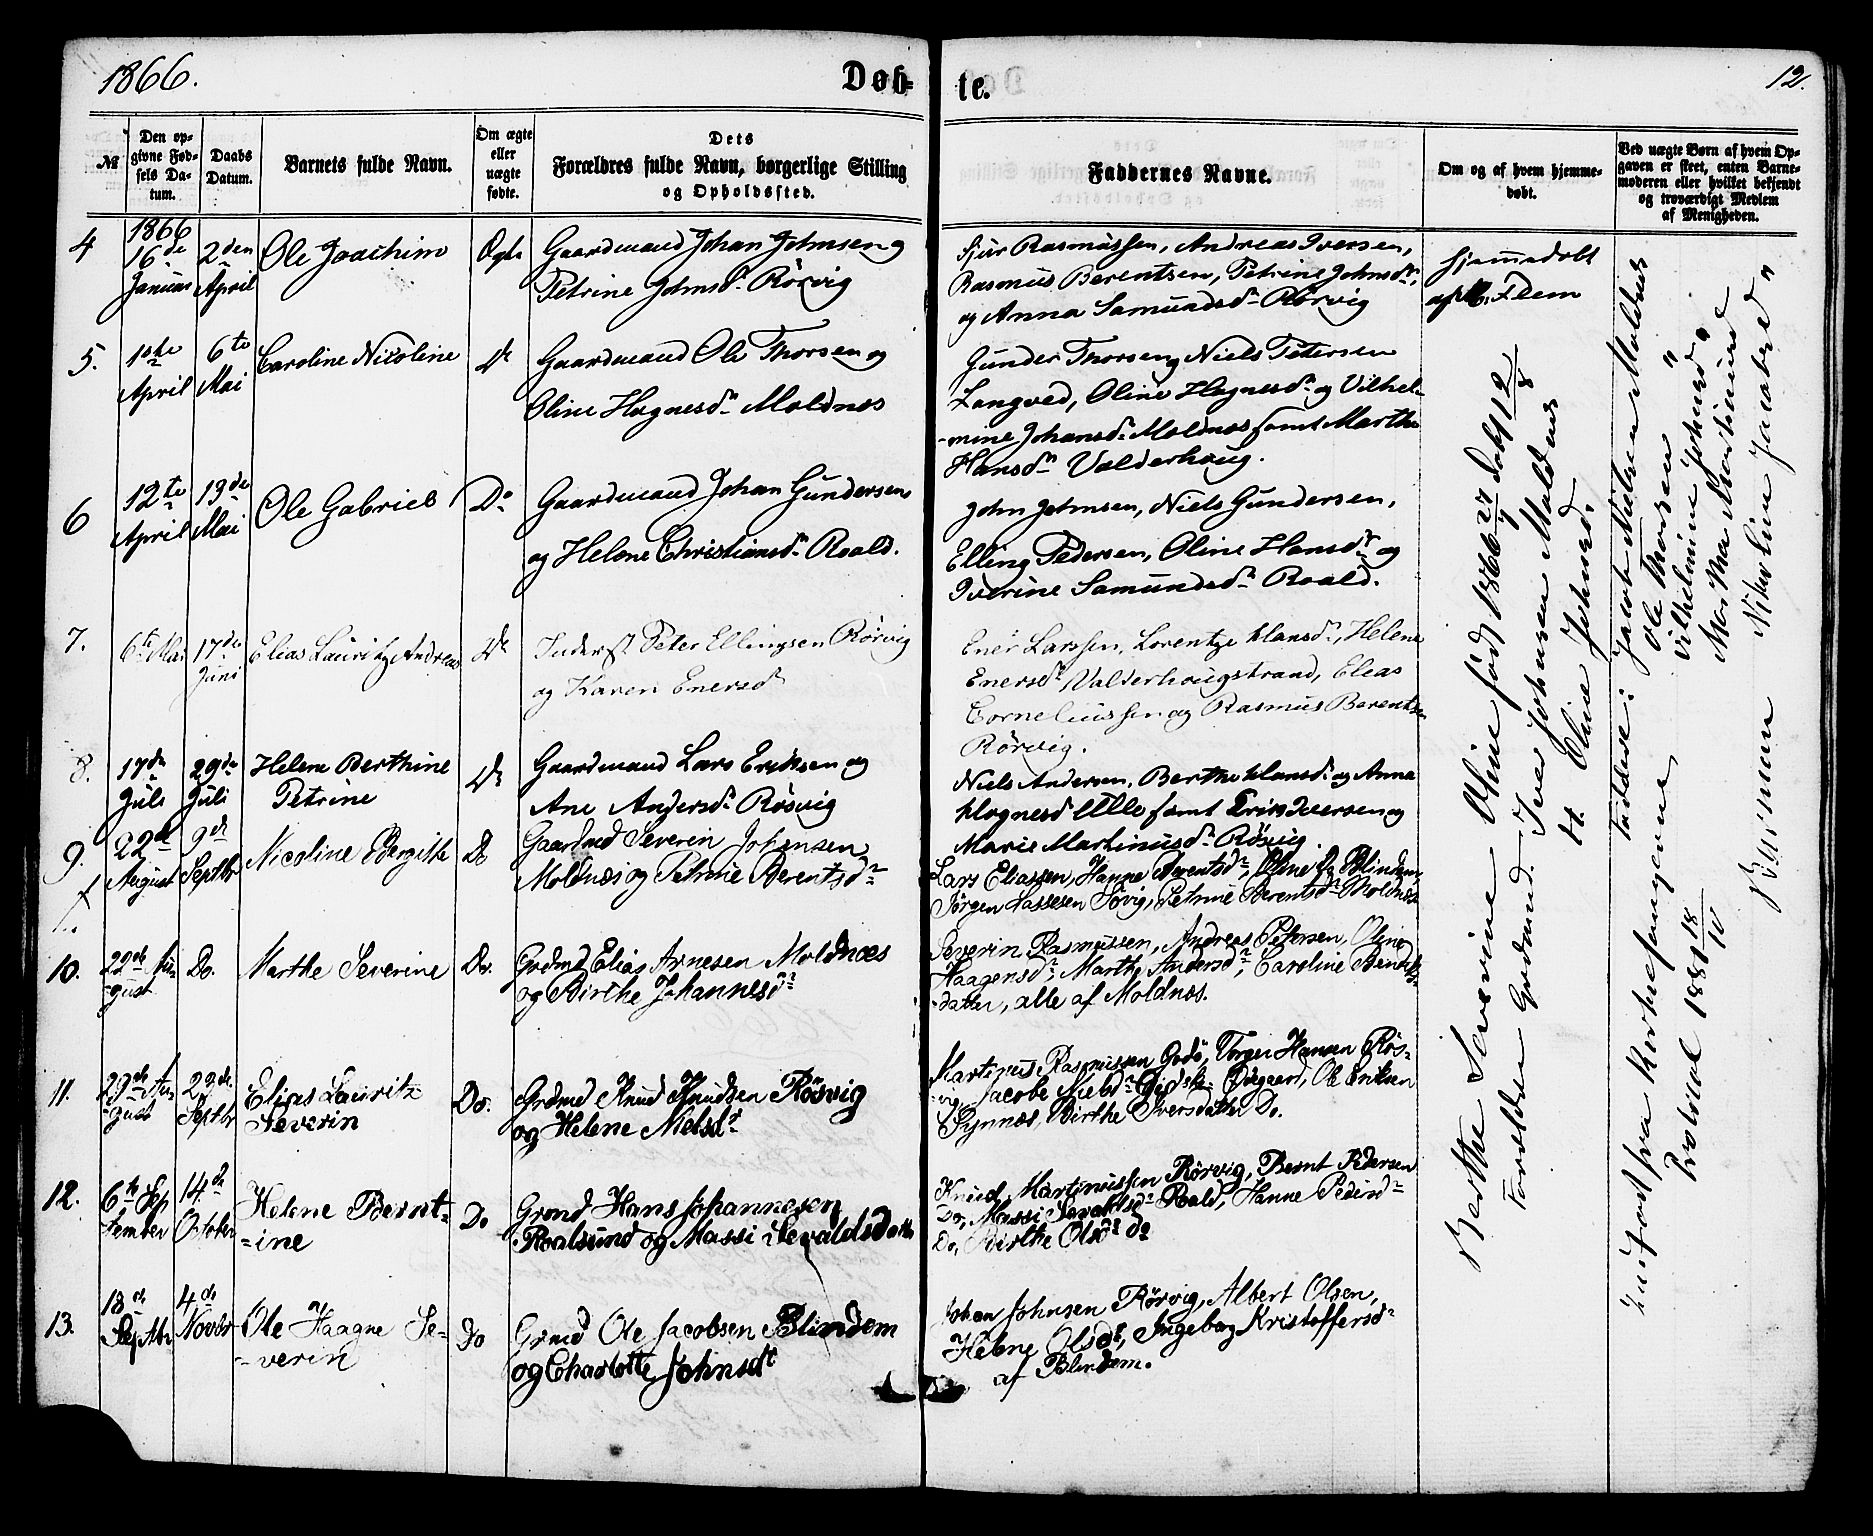 1866.
Døb-
te.
12.
№
Den op-
givne Fød-
sels Da-
tum.
Daabs
Datum.
Barnets fulde Navn.
Om ægte
eller
uægte
fødte.
Dets
Forældres fulde Navn, borgerlige Stilling
og Opholdssted.
Faddernes Navne.
Om og af hvem hjemme-
døbt.
Ved uægte Børn af hvem Op-
gaven er skeet, enten Barne-
moderen eller hvilket bekjendt
og troværdigt Medlem
af Menigheden.
1866
4
16de
Januar
2den
April
Ole Joachim
Ægte
Gaardmand Johan Johnsen og
Petrine Johnsdr Rörvig
Sjur Rasmussen, Andreas Iversen,
Rasmus Berentsen, Petrine Johnsdr,
og Anna Samundsdr Rörvig
hjemmedøbt
af M. Flem
5.
April
6te
Mai
Caroline Nicoline
Do
Gaardmand Ole Thorsen og
Oline Hagnesdr Moldnæs
Gunder Thorsen, Niels Petersen
Langved, Oline Hagnesdr og Vilhel-
-mine Johansdr Moldnæs samt Marthe
Hansdr Valderhoug.
6
12te
April
19de
Mai
Ole Gabriel
Do
Gaardmand Johan Gundersen
og Helene Christiansdr Roald.
John Johnsen, Niels Gundersen,
Elling Pedersen, Oline Hansdr og
Iverine Samundsdr Roald.
7.
6te Mai
17de
Juni
Elias Lauritz Andreas
Do
Inderst Peter Ellingsen Rörvig
og Karen Enersdr
Enér Larssen, Lorentze Hansdr, Helene
Enersdr Valderhougstrand, Elias
Corneliussen og Rasmus Berentsen
Rörvig.
8.
17de
Juli
29de
Juli
Helene Berthine
Petrine
Do
Gaardmand Lars Eriksen og
Ane Andersdr Rösvig
Niels Andersen, Berthe Hansdr og Anna
Hognesd Ulle samt Erik Iversen og
Marie Martinusdr Rösvig.
9.
22de
August
9de
Septbr
Nicoline Bergitte
Do
Gaardmd Severin Johansen
Moldnæs og Petrine Berentsdr
Lars Eliassen, Hanne Berentsdr, Oline Do Blindem,
Jørgen Lassesen Sövig, Petrine Berentsdr Moldnæs
10.
29de Au-
gust
Do.
Marthe Severine
Do.
Grdmd Elias Arnesen Moldnæs
og Birthe Johannesdr
Severin Rasmussen, Andreas Petersen, Oline
Haagensdr, Marthe Andersdr, Caroline Bendiks-
datter, alle af Moldnæs.
11.
29de Au-
gust
23de
Septbr
Elias Lauritz
Severin
Do.
Grdmd Knud Knudsen Rösvig
og Helene Nielsdr
Martinus Rasmussen Godö, Torger Hansen Rös-
-vig, Jacobe Nielsdr Gidske Ødegaard, Ole Eriksen
Synnæs, Birthe Iversdatter Do.
12.
6te Sep
tember
14de
October
Helene Bernt-
=ine
Do
Grmd Hans Johannesen
Roalsund og Massi Sevaldsdatter
Knud Martinussen Rörvig, Bernt Pedersen
Do, Massi Sevaldsdr Roald, Hanne Pedersdr
Do, Birthe Olsdr do
13.
18de
Septbr
4de
Novbr
Ole Haagne Se-
=verin
Do
Grmd Ole Jacobsen Blindem
og Charlotte Johnsdt
Johan Johnsen Rörvig, Albert Olsen,
Helene Olsdr, Ingeborg Kristoffersdr
af Blindem.
Berthe Severine Oline født 1866 27/7 døbt 12/8
Forældre Grdmd. Iver Johansen Moldnæs
og Oline Johnsd.
Faddere: Jacob Nielsen Moldnæs
Ole Thorsen "
Vilhelmine Johnsd. "
Martha Martinusd "
Nikoline Jacobsd "
Indført fra
Protocol 1881 18/10